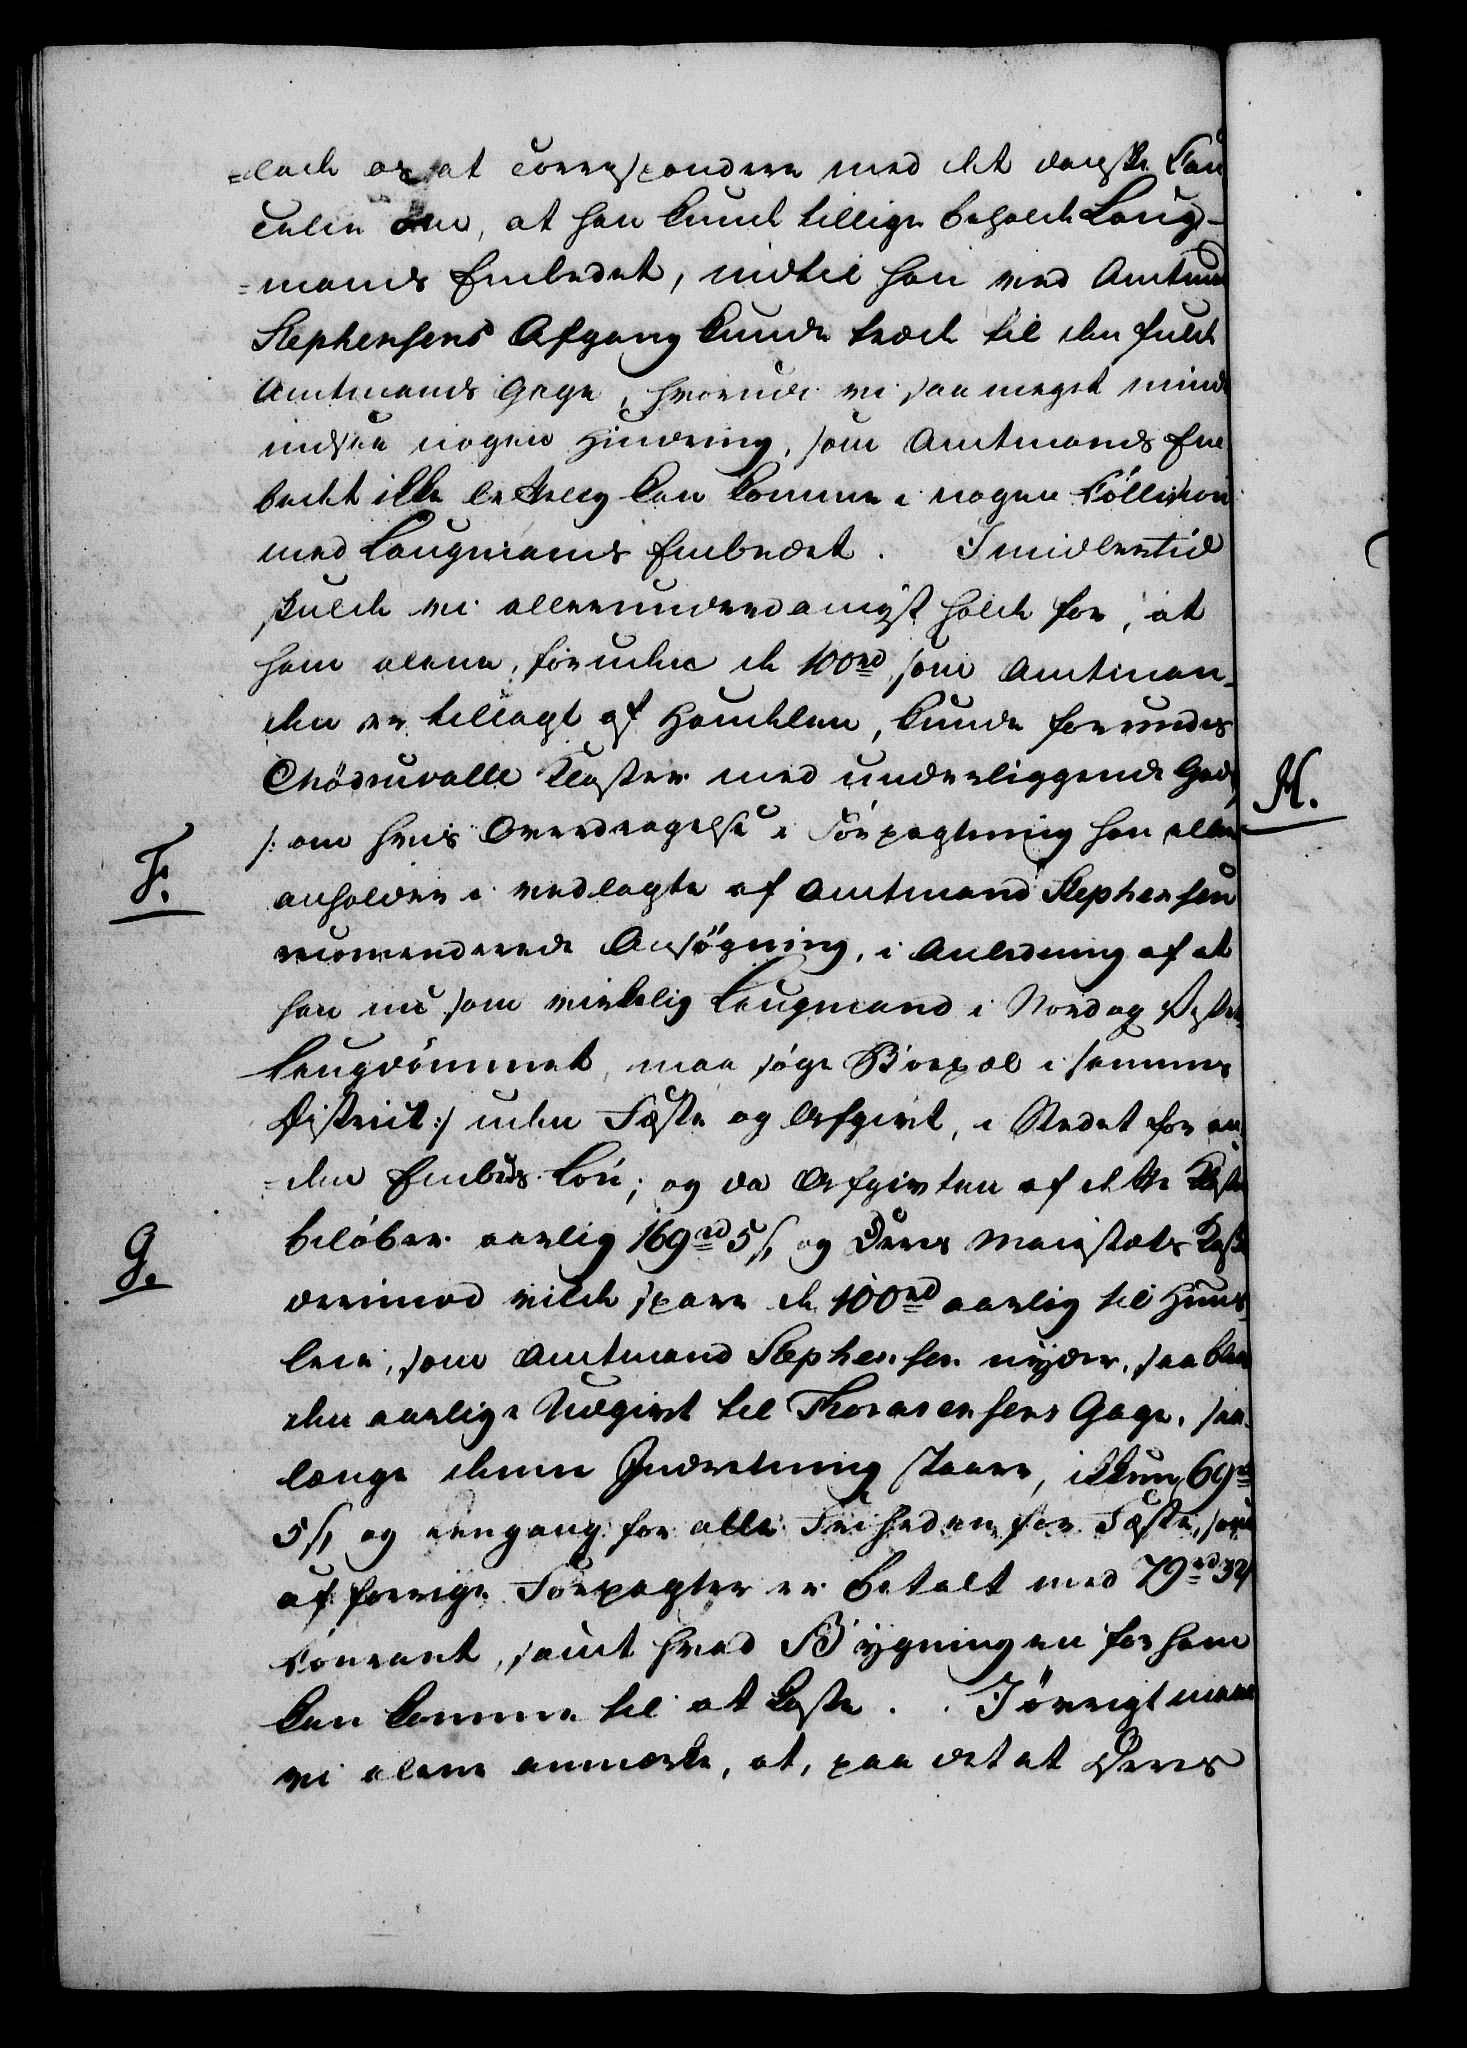 =lade os at correspondere med det danske Can
celie om, at han kunde tillige beholde Laug-
=mands Embedet, indtil han ved Amtmd
Stephensens Afgang kunde træde til den fulde
Amtmands Gage, hvorudi vi saa meget mindre
indsee nogen Hindring, som Amtmands Em
bedet ikke letteleg kan komme i nogen Collision
med Laugmands Embedet. Imidlertid
skulde vi allerunderdanigst holde for, at
ham alene, foruden de 100 rd som Amtman-
den er tillagt af Handelen, kunde forundes
Mödruvalle Kloster med underliggende Gods,
/: om hvis Overdragelse i Forpagtning han allene
F.
anholder i vedlagte af Amtmand Stephensen
recomenderede Ansøgning, i Anledning af at
han nu som virkelig Laugmand i Nord og Vester
Laugdømmet, maa søge Boepæl i samme
District :/ uden Fæste og Afgivt, i Stedet for an
=den Embeds Løn; og da Afgivten af dette Kloster
G.
beløber aarlig 169 rd 5 ß, og Deres Maiestæts Kasse
derimod vilde spare de 100 rd aarlig til Huus-
leie, som Amtmand Stephensen nyder, saa blev
den aarlige Udgivt til Thorarensens Gage, saa-
længe denne Indretning staaer, ikkun 69 rd
5 ß, og eengang for alle Friheden for Fæste, som
af forrige Forpagter er betalt med 79 rd 32
Courant, samt hvad Bygningen for ham
kan komme til at koste. Iøvrigt maae
vi alene anmærke, at, paa det at Deres
H.